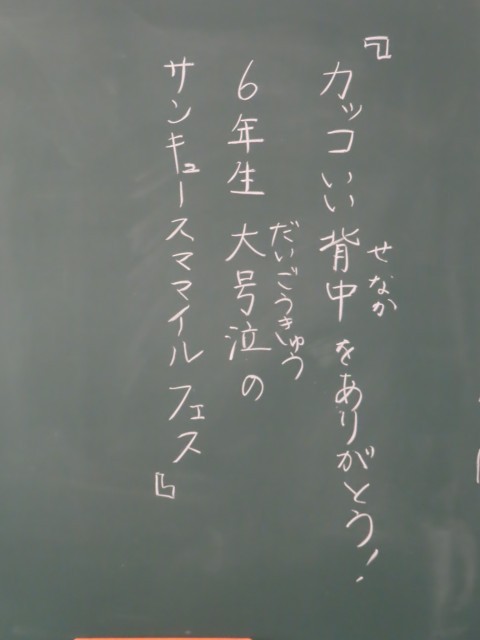 『カッコいい背中をありがとう！
せなか
6年生 大号泣の
だいごうきゅう
サンキュースママイルフェス』